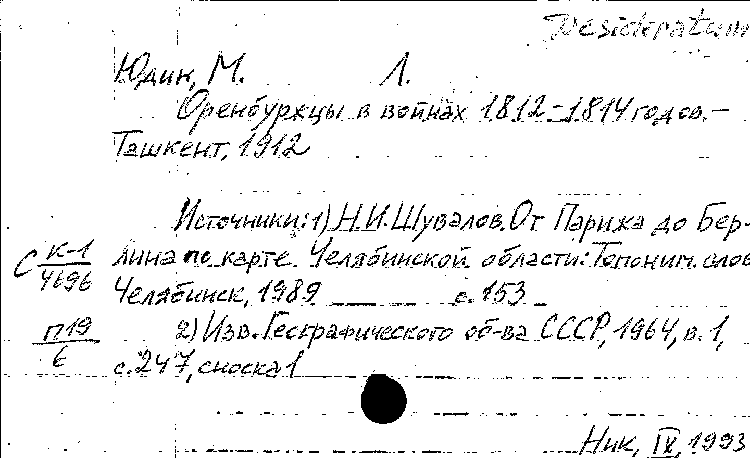 Desideratum
Юдин, М. Л.
Оренбуржцы в войнах 1812-1814 годов.–
Ташкент, 1912
Источники: 1) Н.И. Шувалов. От Парижа до Бер-
С К-1/4696 лина по карте Челябинской области: Топоним. слов
Челябинск, 1989 с. 153
П19/6 2) Изв. Географического об-ва СССР, 1964, в. 1,
с. 247, сноска 1
Ник, IX, 1993